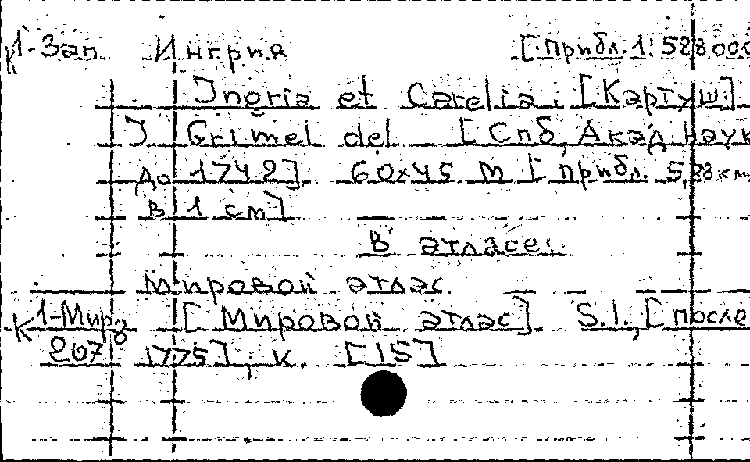 К1-Зап Ингрия [Прибл. 1:588000
Ingria et Carelia. [Картуш]
J Grimel del [Спб, Акад. наук
до 1742] 60x45 m [прибл. 5,88 км
в 1 см]
В атласе:
Мировой атлас
К1-Мир [Мировой атлас] S.l., [после
207 1775], к. [15]